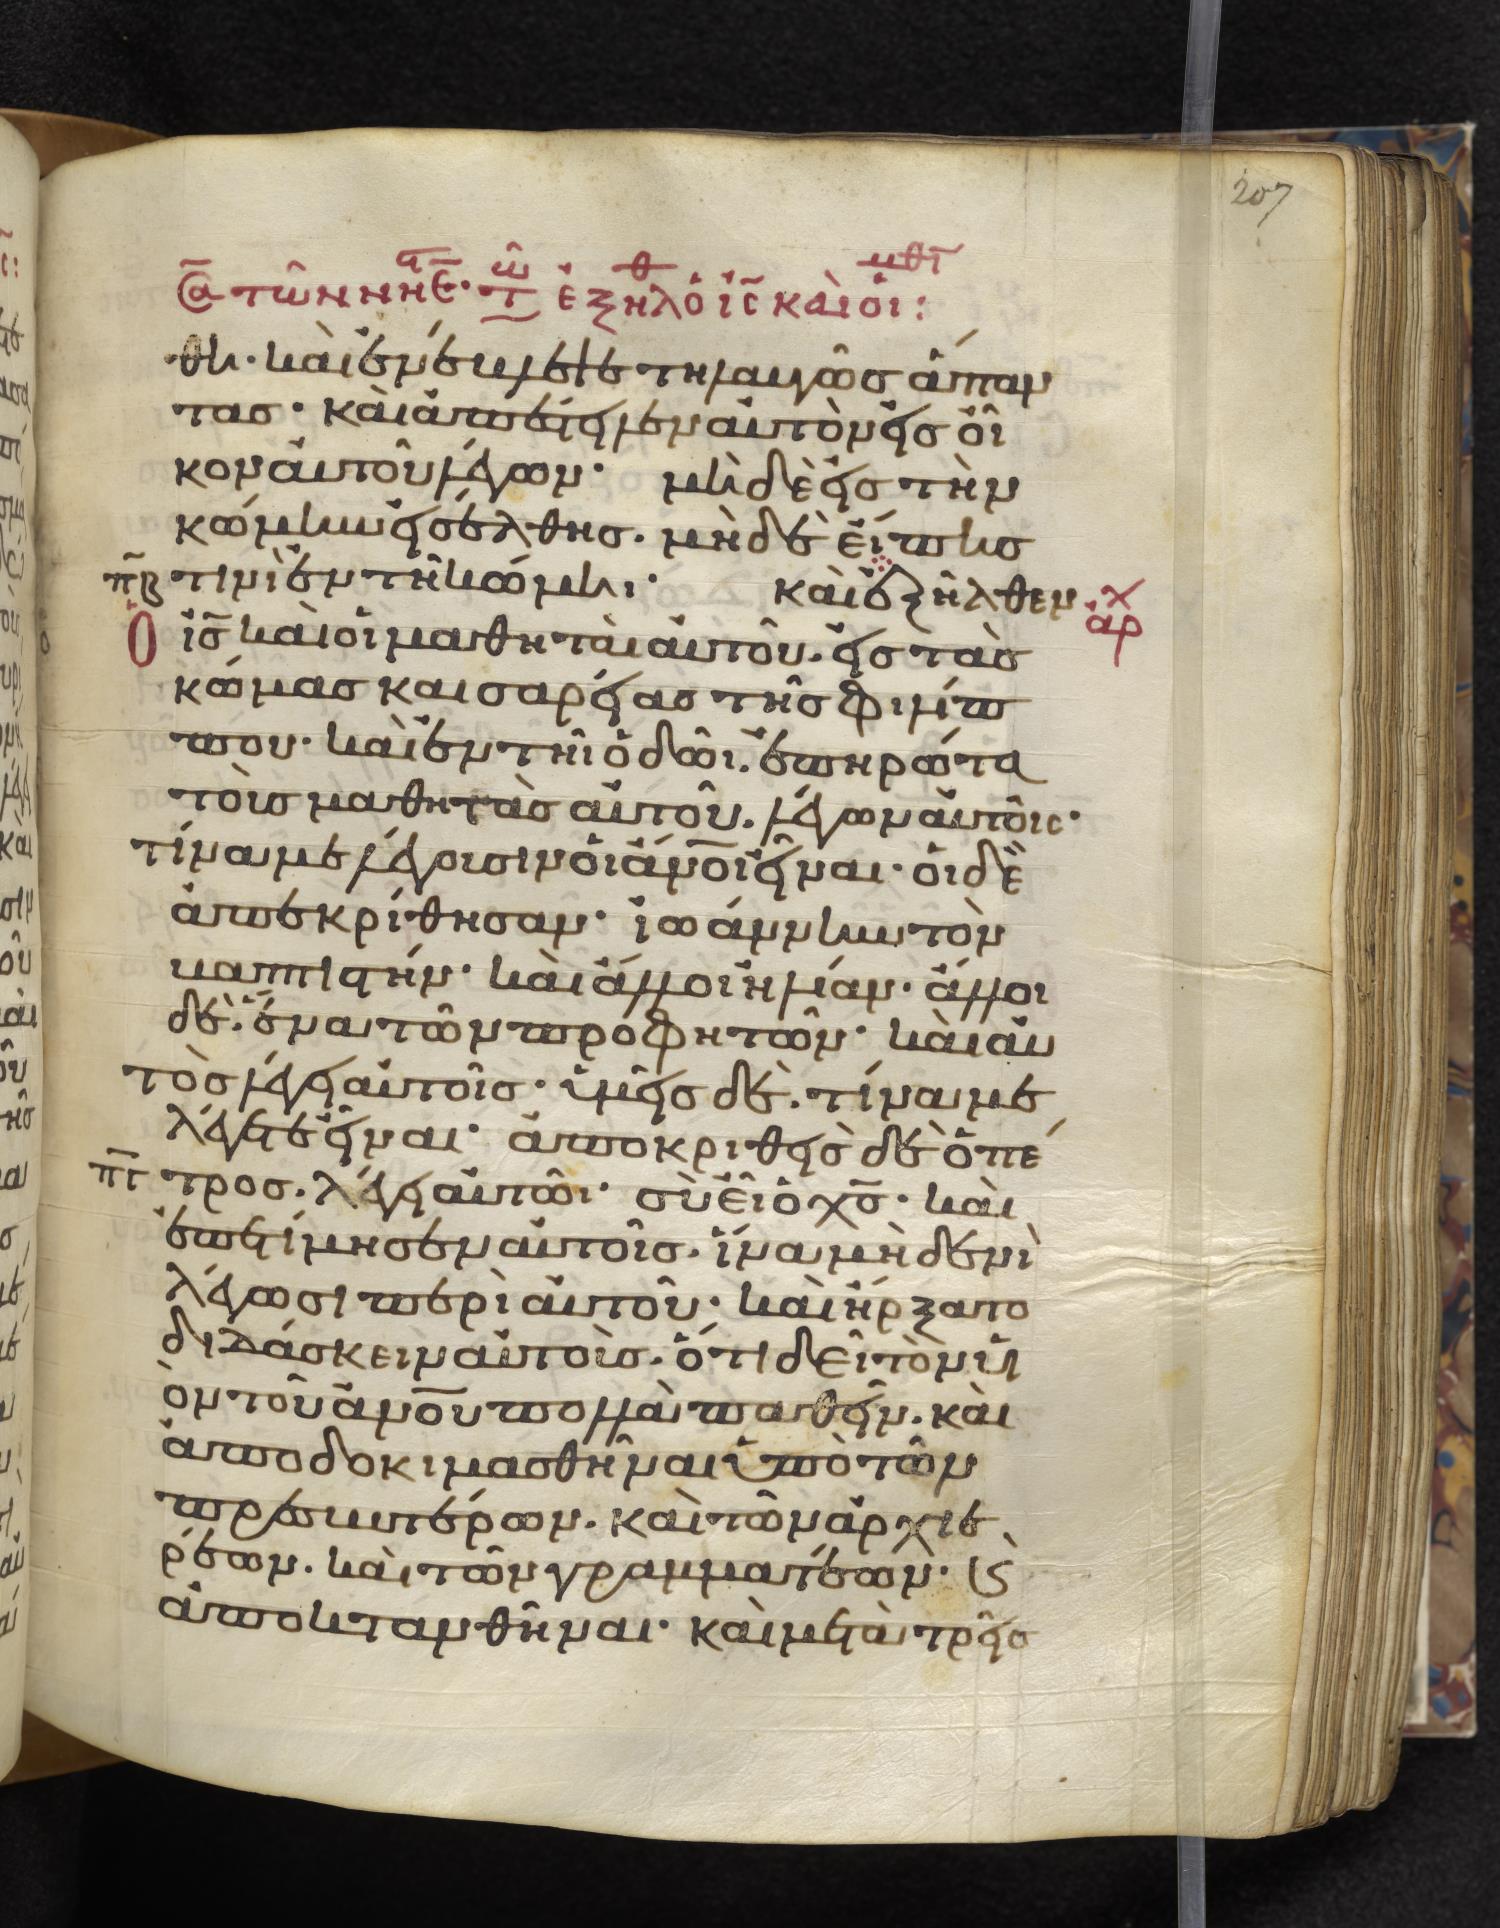 207
τῶν νηϲ τ ἐξῆλθ ὁ ἰ̅ϲ̅ καὶ οἱ μθτ:
θη· καὶ ἐνέβλεψε τηλαυγῶς ἅπαν
τας· καὶ ἀπέστειλεν αὐτὸν εἰς οἶ
κον αὐτοῦ λέγων· μηδὲ εἰς τὴν
κώμην εἰσέλθης. μηδὲ εἴπης
π̅β̅ τινὶ ἐν τῆ κώμηι· καὶ ἐξῆλθεν ἀρχ
Ὁ ἰ̅ς̅ καὶ οἱ μαθηταὶ αὐτοῦ. εἰς τὰς
κώμας καισαρείας τῆς φιλίπ
που· καὶ ἐν τῆι ὁδῶι. ἐπηρώτα
τοὺς μαθητὰς αὐτοῦ. λέγων αὐτοῖς·
τίνα με λέγουσιν οἱ ἄν̅ο̅ι̅ εἶναι· οἱ δὲ
ἀπεκρίθησαν· ἰωάννην τὸν
βαπτιστήν· καὶ ἄλλοι ἠλίαν· ἄλλοι
δὲ. ἕνα τῶν προφητῶν· καὶ αὐ
τὸς λέγει αὐτοῖς· ὑμεῖς δὲ. τίνα με
λέγετε εἶναι· ἀποκριθεὶς δὲ ὁ πέ
π̅γ̅ τρος. λέγει αὐτῶι· σὺ εἶ ὁ χ̅ς̅· καὶ
ἐπετίμησεν αὐτοῖς. ἵνα μηδενὶ
λέγωσι περὶ αὐτοῦ· καὶ ἤρξατο
διδάσκειν αὐτοὺς. ὅτι δεῖ τὸν υἱ
ὸν τοῦ ἀν̅ο̅υ̅ πολλὰ παθεῖν. καὶ
ἀποδοκιμασθῆναι ὑπὸ τῶν
πρεσβυτέρων. καὶ τῶν ἀρχιε
ρέων. καὶ τῶν γραμματέων· ϗ
ἀποκτανθῆναι· καὶ μετὰ τρεῖς